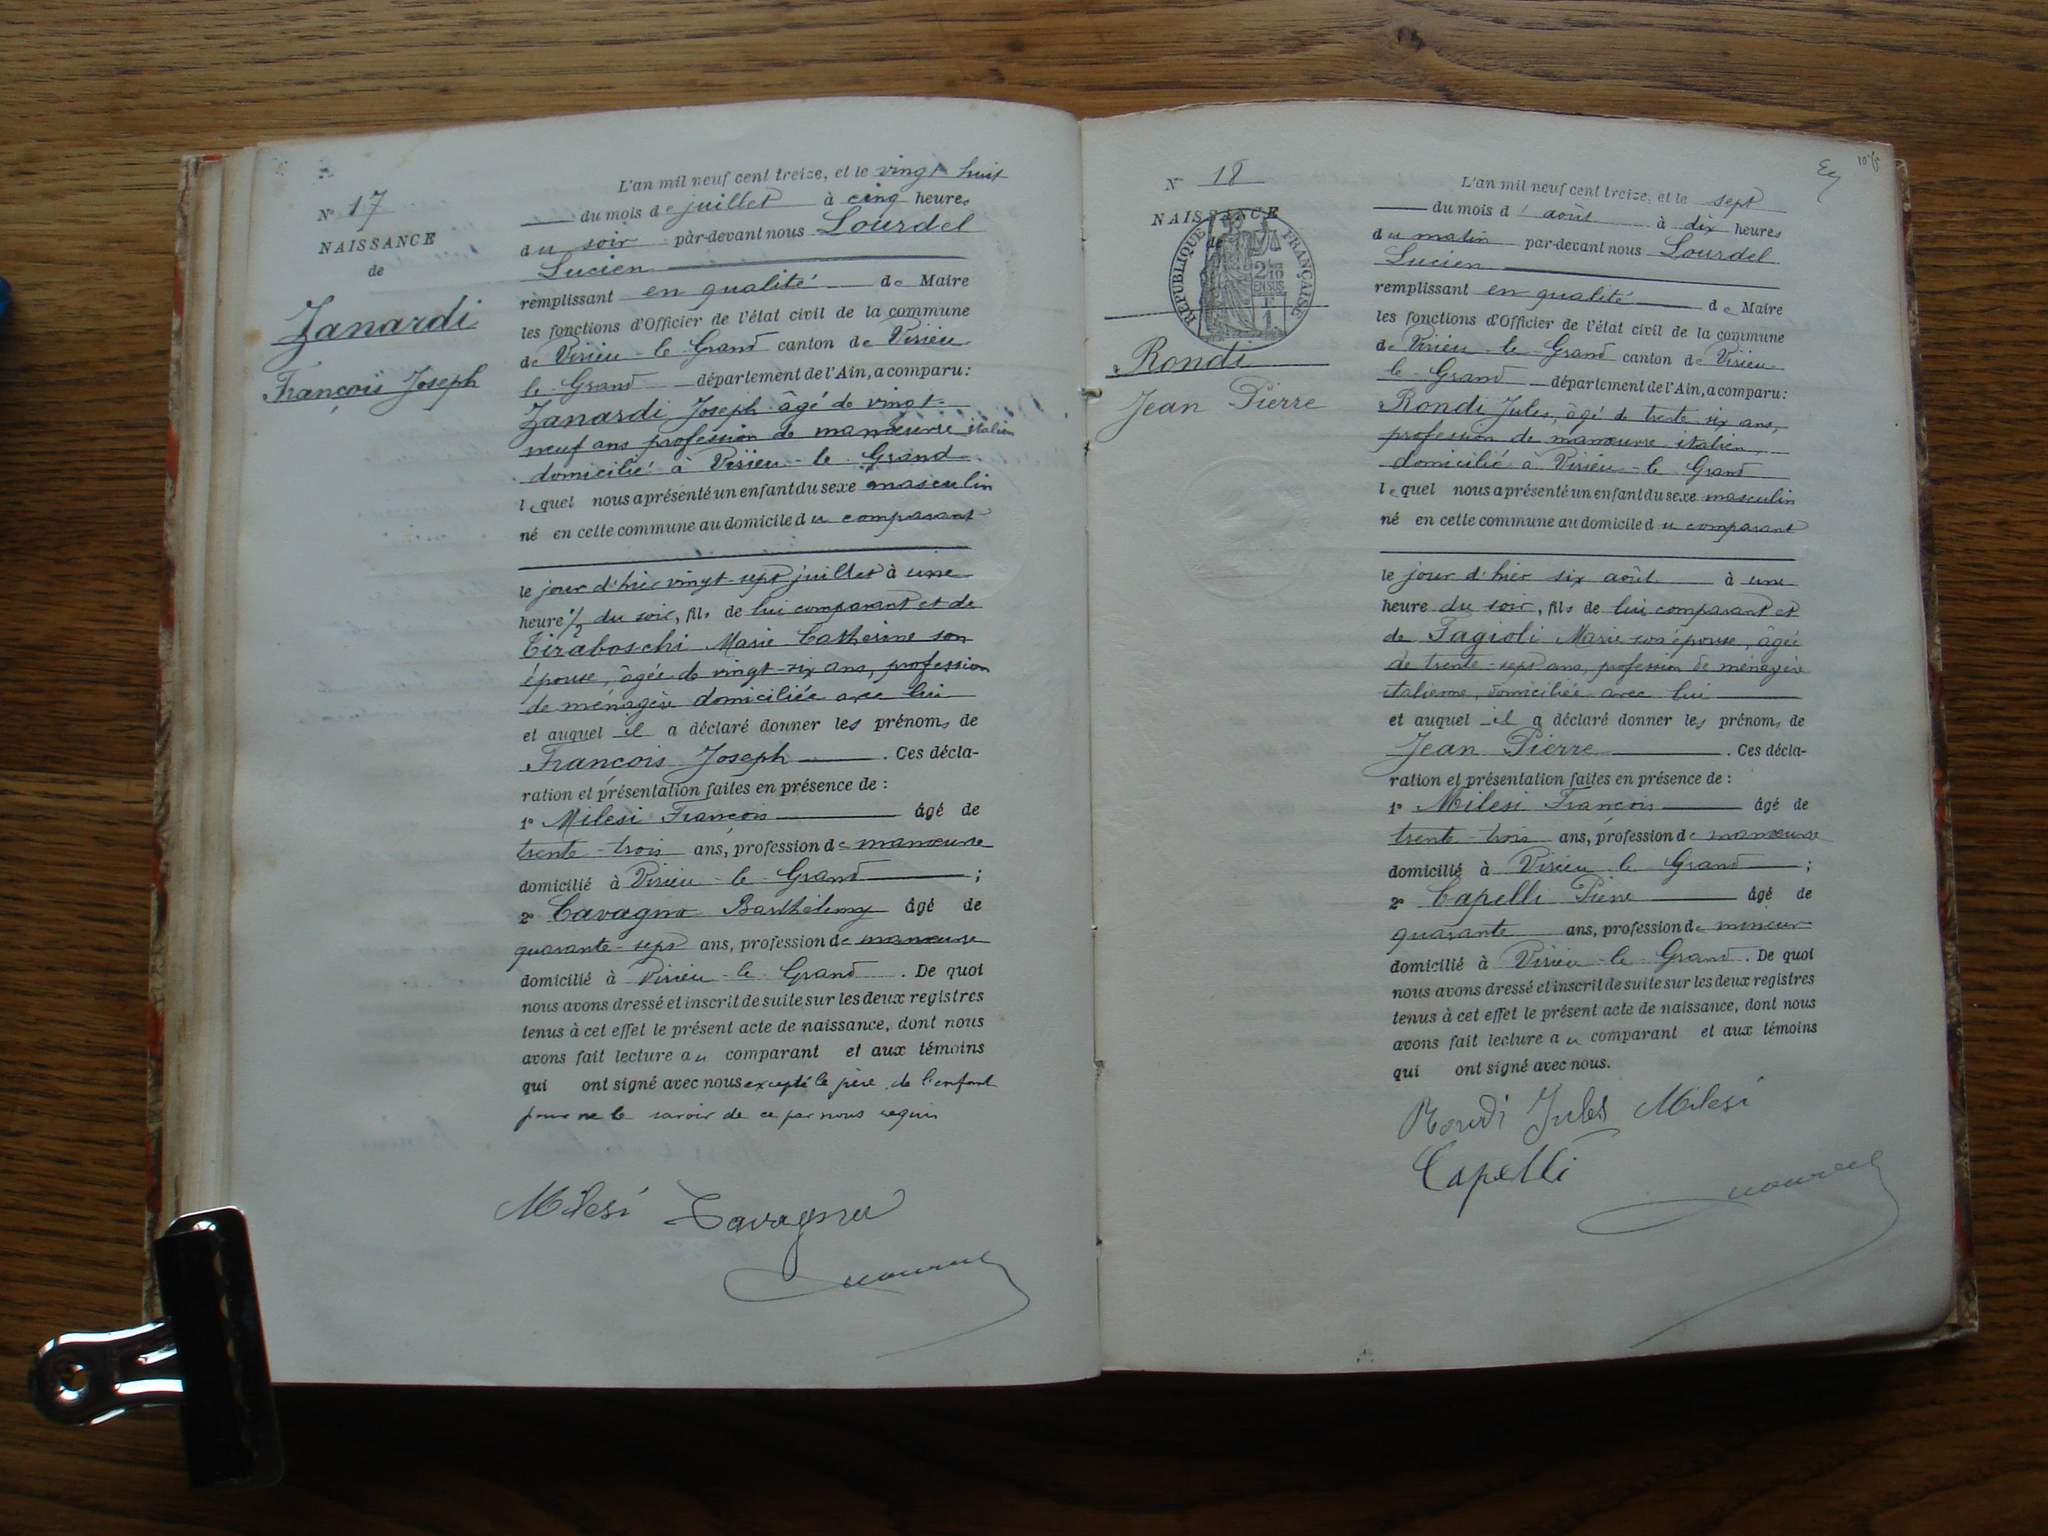 L'an mil neuf cent treize, et le vingt huit
N° 17
du mois de juillet à cinq heures
NAISSANCE
du soir par-devant nous Lourdel
de
Lucien
Zanardi
François Joseph
remplissant en qualité de Maire
les fonctions d'Officier de l'état civil de la commune
de Virieu-le-Grand canton de Virieu
le Grand département de l'Ain, a comparu:
Zanardi Joseph âgé de vingt-
neuf ans profession de manœuvre italien
domicilié à Virieu-le-Grand
lequel nous a présenté un enfant du sexe masculin
né en cette commune au domicile du comparant
le jour d'hier vingt-sept juillet à une
heure ½ du soir, fils de lui comparant et de
Tiraboschi Marie Catherine son
épouse, âgée de vingt-six ans, profession
de ménagère domiciliée avec lui
et auquel il a déclaré donner les prénoms de
François Joseph. Ces décla-
ration et présentation faites en présence de :
1° Milesi François âgé de
trente-trois ans, profession de manœuvre
domicilié à Virieu-le-Grand ;
2° Cavagna Barthélemy âgé de
quarante-sept ans, profession de manœuvre
domicilié à Virieu-le-Grand. De quoi
nous avons dressé et inscrit de suite sur les deux registres
tenus à cet effet le présent acte de naissance, dont nous
avons fait lecture au comparant et aux témoins
qui ont signé avec nous excepté le père de l'enfant
pour ne le savoir de ce par nous requis
Milesi Cavagna
L'an mil neuf cent treize, et le sept
N° 18
du mois d'août à dix heures
NAISSANCE
de
RÉPUBLIQUE FRANÇAISE
2/10 EN SUS
1F
du matin par-devant nous Lourdel
Lucien
Rondi
Jean Pierre
remplissant en qualité de Maire
les fonctions d'Officier de l'état civil de la commune
de Virieu-le-Grand canton de Virieu
le Grand département de l'Ain, a comparu:
Rondi Jules, âgé de trente six ans,
profession de manœuvre italien,
domicilié à Virieu-le-Grand
lequel nous a présenté un enfant du sexe masculin
né en cette commune au domicile du comparant
le jour d'hier six août à une
heure du soir, fils de lui comparant et
de Fagioli Marie son épouse, âgée
de trente-sept ans, profession de ménagère
italienne, domiciliée avec lui
et auquel il a déclaré donner les prénoms de
Jean Pierre. Ces décla-
ration et présentation faites en présence de :
1° Milesi François âgé de
trente-trois ans, profession de manœuvre
domicilié à Virieu le Grand ;
2° Capelli Pierre âgé de
quarante ans, profession de mineur
domicilié à Virieu-le-Grand. De quoi
nous avons dressé et inscrit de suite sur les deux registres
tenus à cet effet le présent acte de naissance, dont nous
avons fait lecture au comparant et aux témoins
qui ont signé avec nous.
Rondi Jules Milesi
Capelli